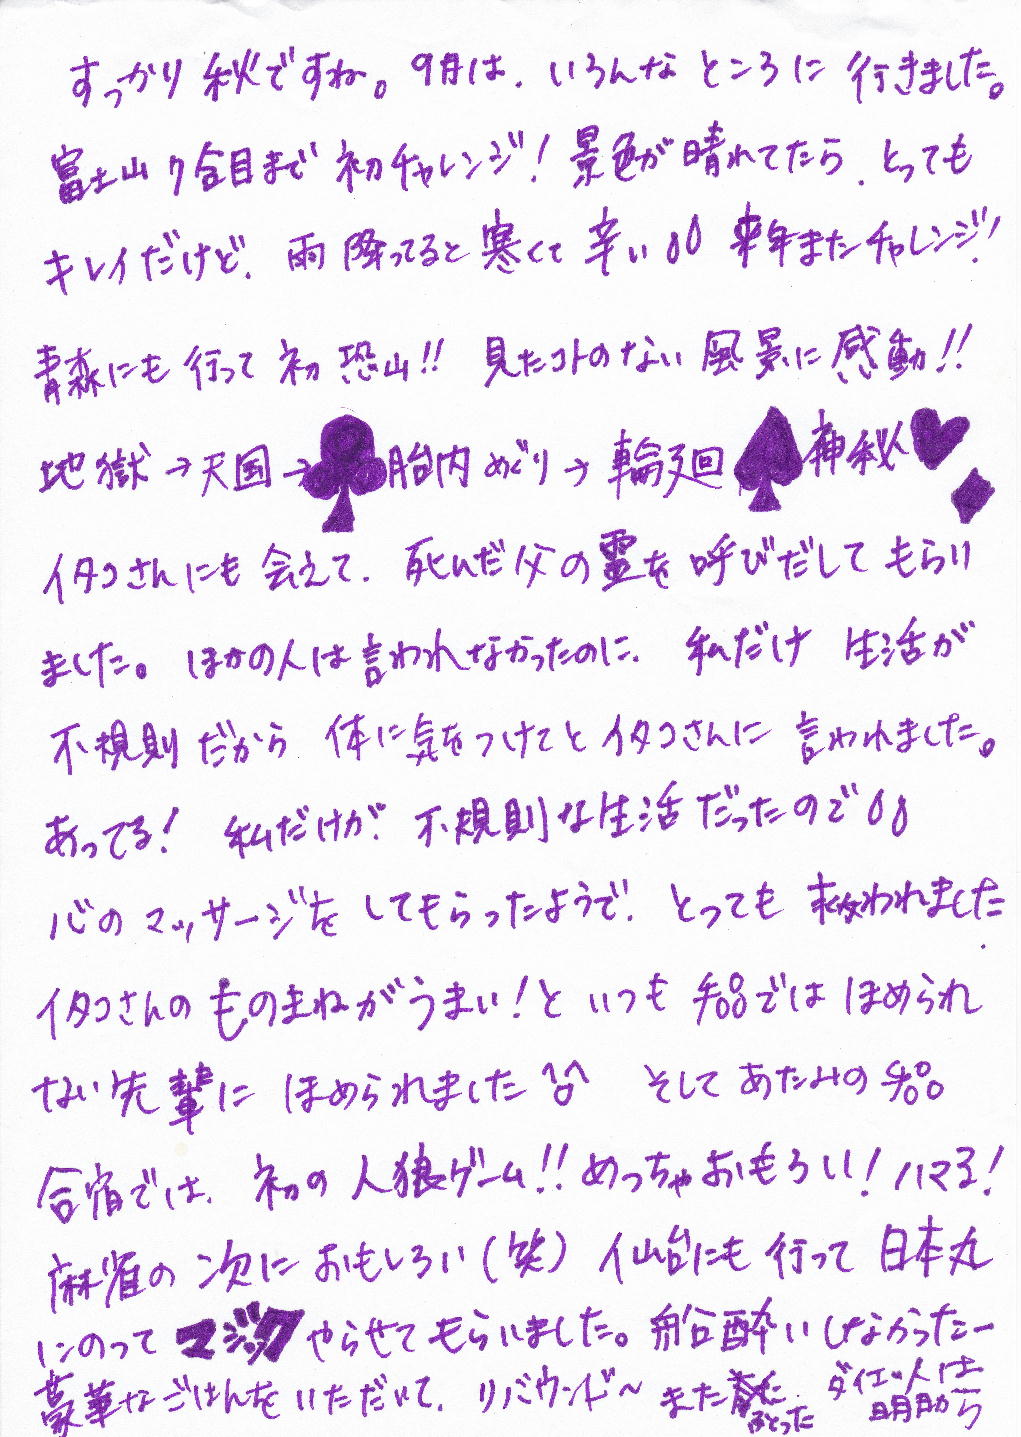 すっかり秋ですね。9月は、いろんなところに行きました。
富士山7合目まで初チャレンジ！景色が晴れてたら、とっても
キレイだけど、雨降ってると寒くて辛い 来年またチャレンジ！
青森にも行って初恐山!! 見たコトのない風景に感動!!
地獄→天国→♣胎内めぐり→輪廻♠神秘♥♦
イタコさんにも会えて、死んだ父の霊を呼びだしてもらい
ました。ほかの人は言われなかったのに、私だけ生活が
不規則だから体に気をつけてとイタコさんに言われました。
あってる！私だけが不規則な生活だったので
心のマッサージをしてもらったようで、とっても救われました.
イタコさんのものまねがうまい！といつもチームではほめられ
ない先輩にほめられました^^ そしてあたみの
合宿では、初の人狼ゲーム!!めっちゃおもろい！ハマる！
麻雀の次におもしろい(笑) 仙台にも行って日本丸
にのってマジックやらせてもらいました。船酔いしなかったー
豪華なごはんをいただいて、リバウンド〜 また ふとった ダイエッ人は
明日から